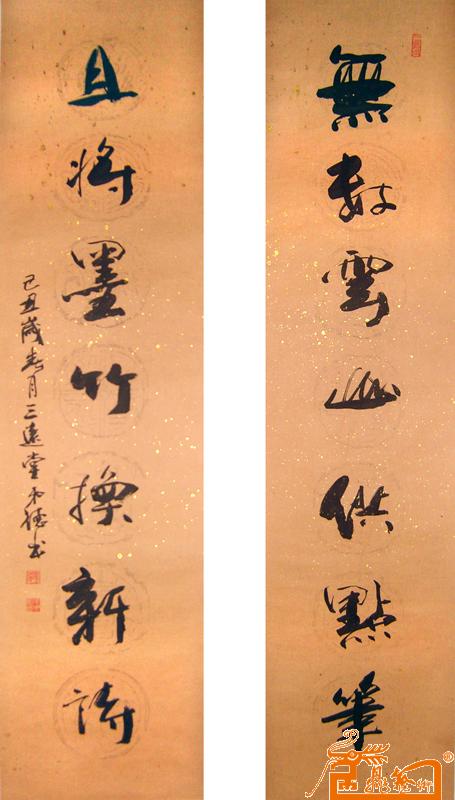 無數雲山供點筆
且將墨竹換新詩
己丑歲春月三遠堂